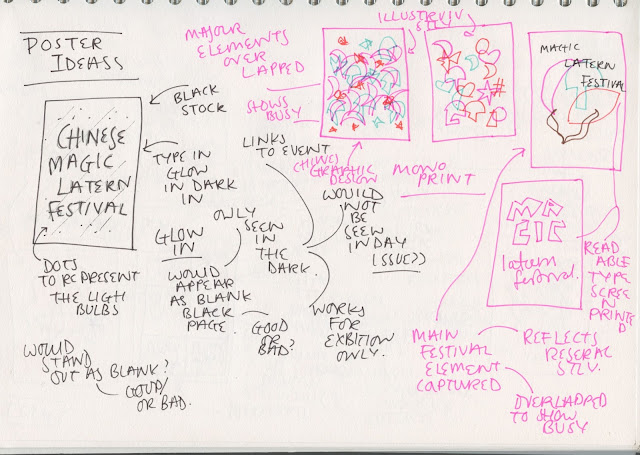 POSTER
IDEASS
CHINESE
MAGIC
LATERN
FESTIVAL
DOTS
TO REPRESENT
THE LIGH
BULBS
WOULD
STAND
OUT AS BLANK?
GOOD/
OR BAD.
BLACK
STOCK
TYPE IN
GLOW
IN DARK
IN
GLOW
IN
WOULD
APPEAR
AS BLANK
BLACK
PAGE.
GOOD
OR
BAD?
ONLY
SEEN
IN
THE
DARK.
LINKS
TO EVENT
WOULD
NOT
BE
SEEN
IN DAY
ISSUE??
WORKS
FOR
EXBITION
ONLY.
MAJOUR
ELEMENTS
OVER
LAPPED
SHOWS
BUSY
GRAPHIC
DESIGN
MONO
PRINT
MAGIC
LATERN
FESTIVAL
MA
latern
festival.
READ
ABLE
TYPE
SCREE
N
PRINTE
D
MAIN
FESTIVAL
ELEMENT
CAPTURED
REFLECTS
OVERLAPPED
TO SHOW
BUSY